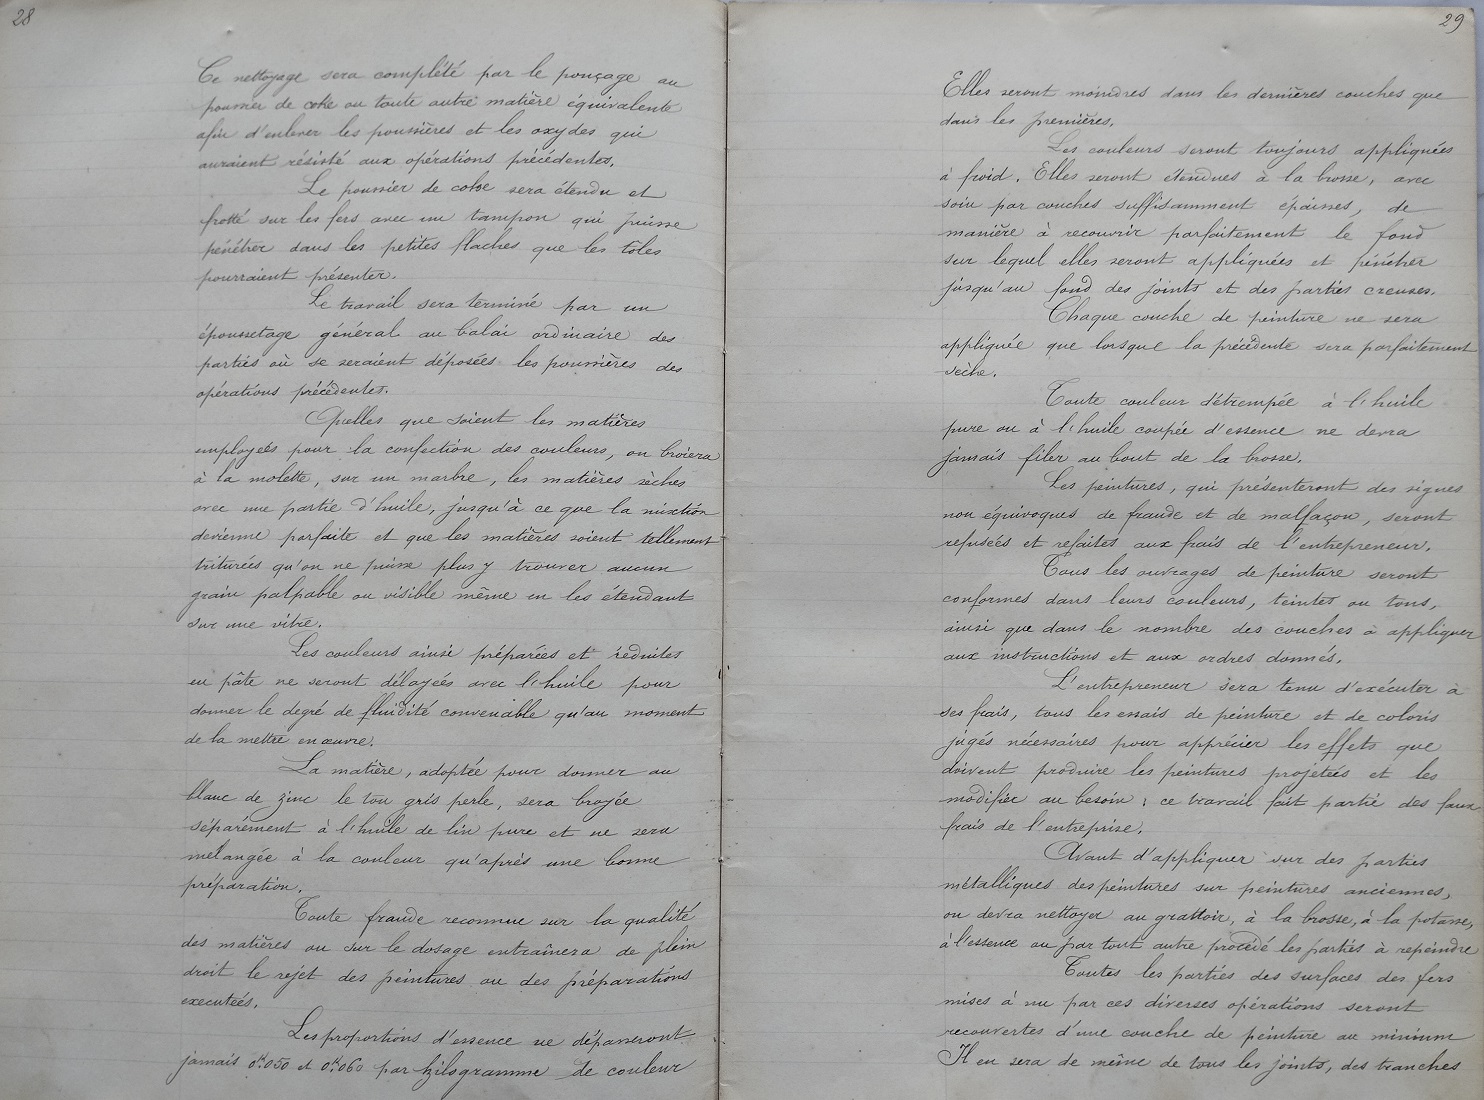 28
Ce nettoyage sera complété par le ponçage au
poussier de coke ou toute autre matière équivalente
afin d'enlever les poussières et les oxydes qui
auraient résisté aux opérations précédentes.
Le poussier de coke sera étendu et
frotté sur les fers avec un tampon qui puisse
pénétrer dans les petites flaches que les tôles
pourraient présenter.
Le travail sera terminé par un
époussetage général au balai ordinaire des
parties où se seraient déposées les poussières des
opérations précédentes.
Quelles que soient les matières
employées pour la confection des couleurs, on broiera
à la molette, sur un marbre, les matières sèches
avec une partie d'huile, jusqu'à ce que la mixtion
devienne parfaite et que les matières soient tellement
triturées qu'on ne puisse plus y trouver aucun
grain palpable ou visible même en les étendant
sur une vitre.
Les couleurs ainsi préparées et réduites
en pâte ne seront délayées avec l'huile pour
donner le degré de fluidité convenable qu'au moment
de la mettre en œuvre.
La matière, adoptée pour donner au
blanc de zinc le ton gris perle, sera broyée
séparément à l'huile de lin pure et ne sera
mélangée à la couleur qu'après une bonne
préparation.
Toute fraude reconnue sur la qualité
des matières ou sur le dosage entraînera de plein
droit le rejet des peintures ou des préparations
executées.
Les proportions d'essence ne dépasseront
jamais 0k.050 et 0k.060 par kilogramme de couleur
29
Elles seront moindres dans les dernières couches que
dans les premières.
Les couleurs seront toujours appliquées
à froid. Elles seront étendues à la brosse, avec
soin par couches suffisamment épaisses, de
manière à recouvrir parfaitement le fond
sur lequel elles seront appliquées et pénétrer
jusqu'au fond des joints et des parties creuses.
Chaque couche de peinture ne sera
appliquée que lorsque la précédente sera parfaitement
sèche.
Toute couleur détrempée à l'huile
pure ou à l'huile coupée d'essence ne devra
jamais filer au bout de la brosse.
Les peintures, qui présenteront des signes
non équivoques de fraude et de malfaçon, seront
refusées et refaites aux frais de l'entrepreneur.
Tous les ouvrages de peinture seront
conformes dans leurs couleurs, teintes ou tons,
ainsi que dans le nombre des couches à appliquer
aux instructions et aux ordres donnés.
L'entrepreneur sera tenu d'exécuter à
ses frais, tous les essais de peinture et de coloris
jugés nécessaires pour apprécier les effets que
doivent produire les peintures projetées et les
modifiée au besoin; ce travail fait partie des faux
frais de l'entreprise.
Avant d'appliquer sur des parties
métalliques des peintures sur peintures anciennes,
on devra nettoyer au grattoir, à la brosse, à la potasse,
à l'essence ou par tout autre procédé les parties à repeindre
Toutes les parties des surfaces des fers
mises à nu par ces diverses opérations seront
recouvertes d'une couche de peinture au minium
Il en sera de même de tous les joints, des tranches